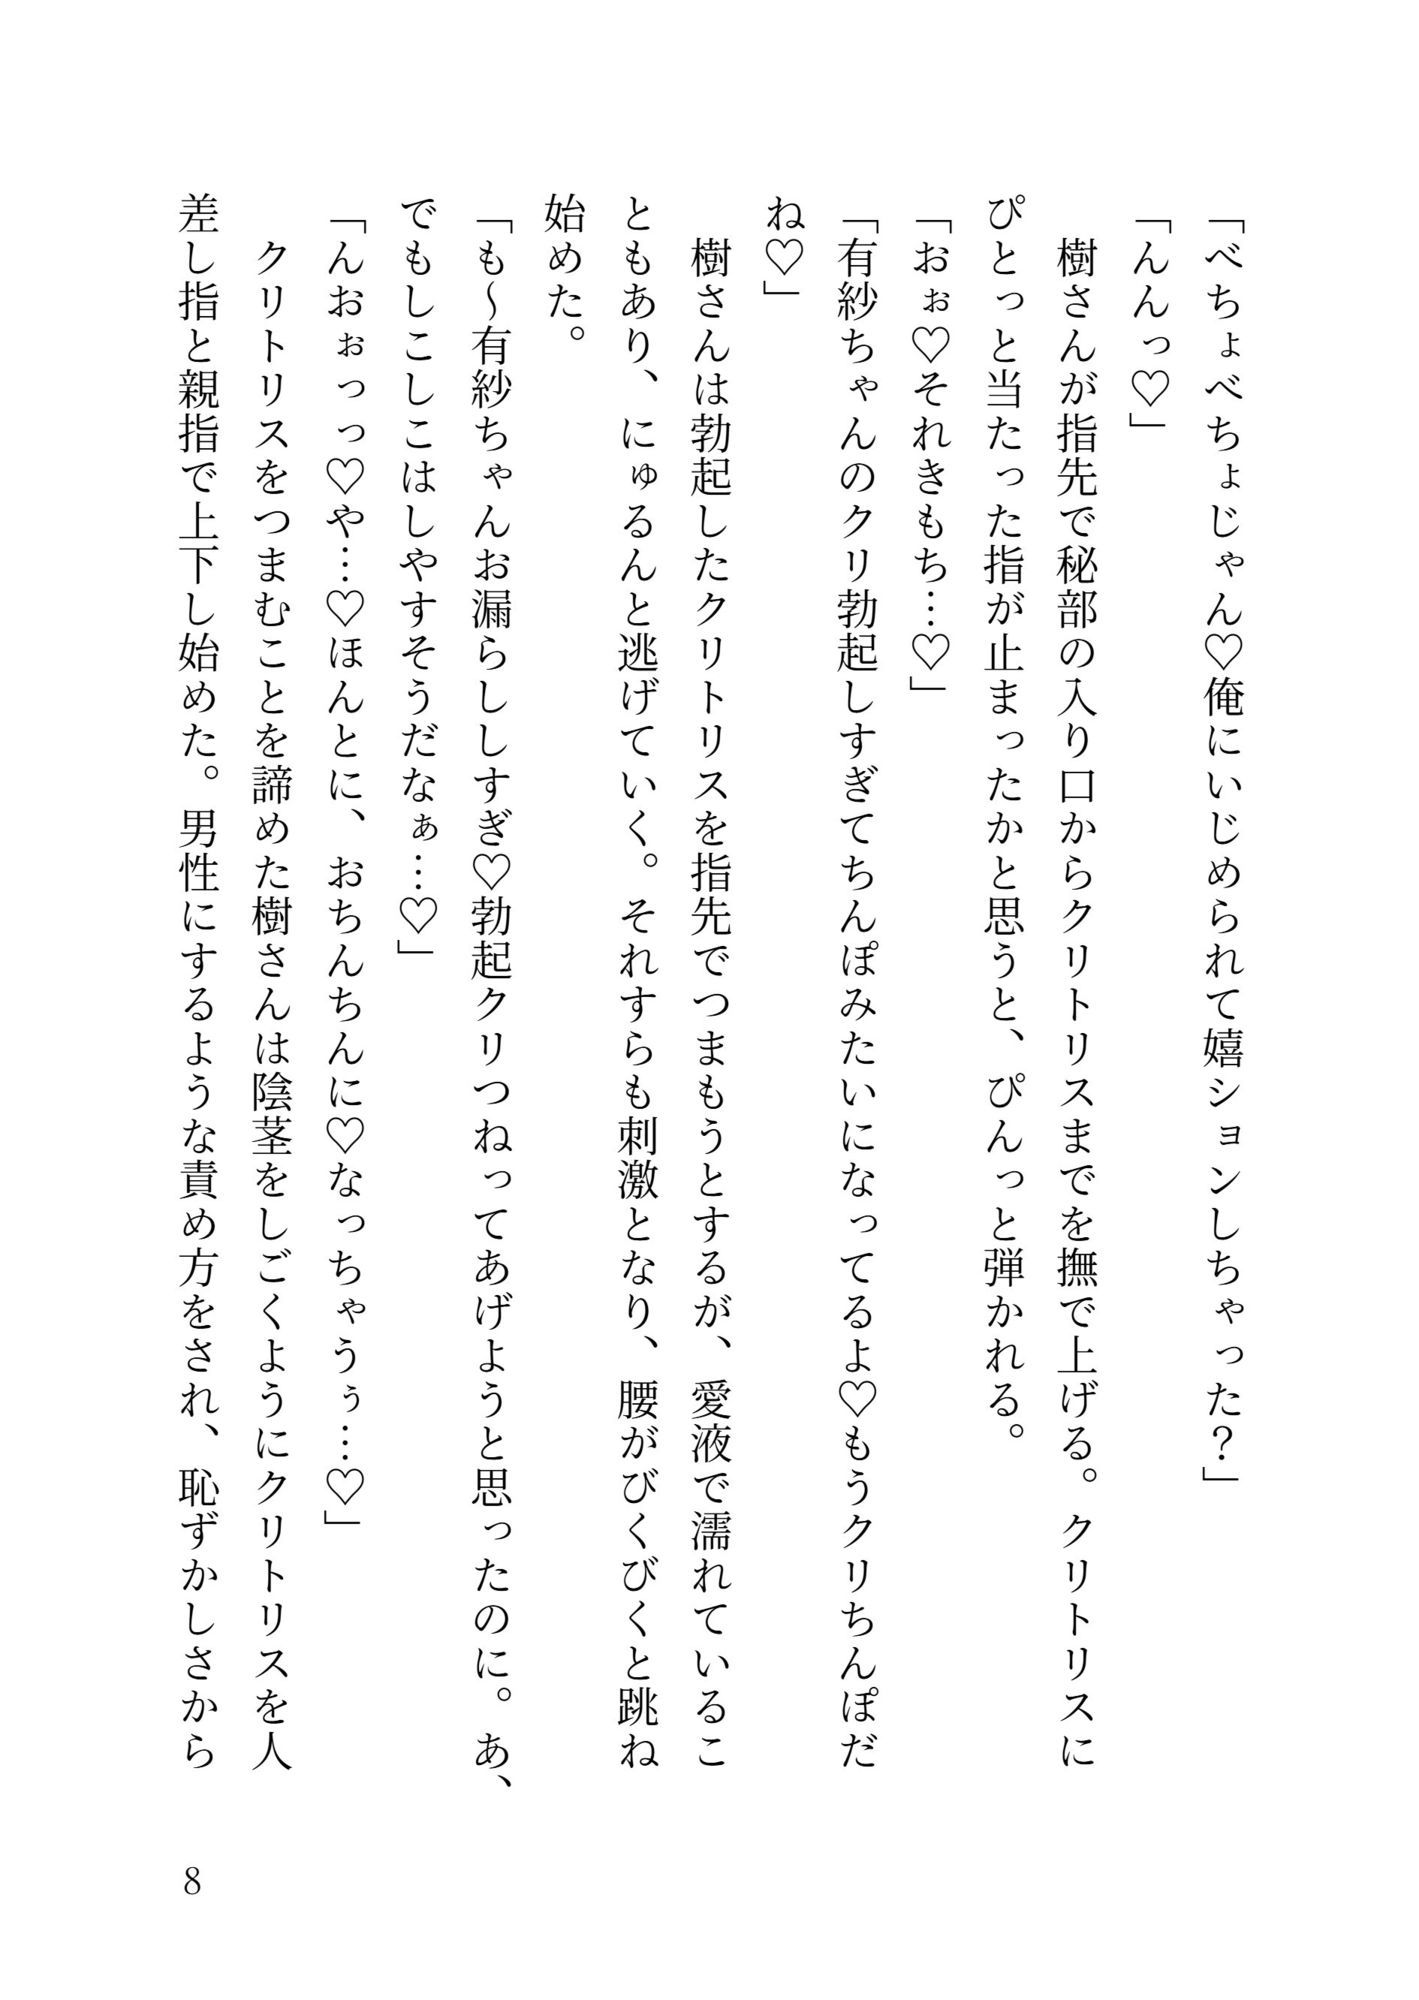 「べちょべちょじゃん♡俺にいじめられて嬉ションしちゃった？」
「んんっ♡」
　樹さんが指先で秘部の入り口からクリトリスまでを撫で上げる。クリトリスに
ぴとっと当たった指が止まったかと思うと、ぴんっと弾かれる。
「おぉ♡それきもち…♡」
「有紗ちゃんのクリ勃起しすぎてちんぽみたいになってるよ♡もうクリちんぽだ
ね♡」
　樹さんは勃起したクリトリスを指先でつまもうとするが、愛液で濡れているこ
ともあり、にゅるんと逃げていく。それすらも刺激となり、腰がびくびくと跳ね
始めた。
「も～有紗ちゃんお漏らししすぎ♡勃起クリつねってあげようと思ったのに。あ、
でもしこしこはしやすそうだなぁ…♡」
「んおぉっっ♡や…♡ほんとに、おちんちんに♡なっちゃうぅ…♡」
　クリトリスをつまむことを諦めた樹さんは陰茎をしごくようにクリトリスを人
差し指と親指で上下し始めた。男性にするような責め方をされ、恥ずかしさから
8